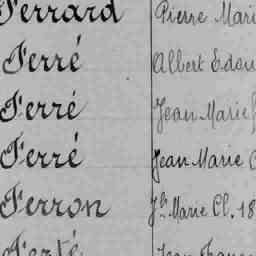 Ferrard Pierre Mari
Ferré Albert Edou
Ferré Jean Marie
Ferré Jean Marie
Ferron Jh Marie Cl. 18
Ferté Jean Franç